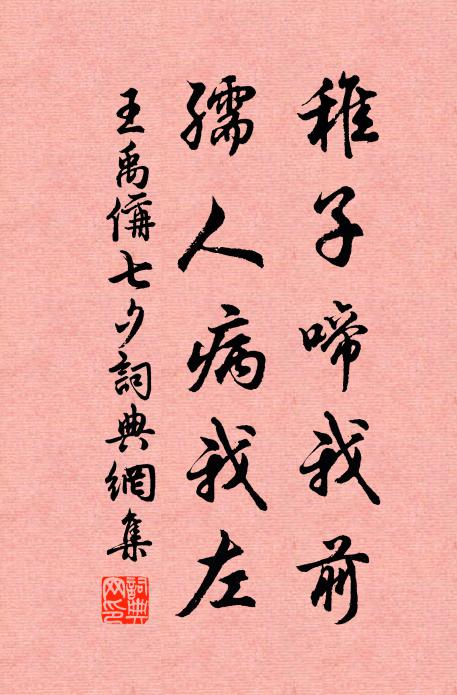 稚子啼我前
孺人病我左
王禹偁七夕詞典網集
詞典網印